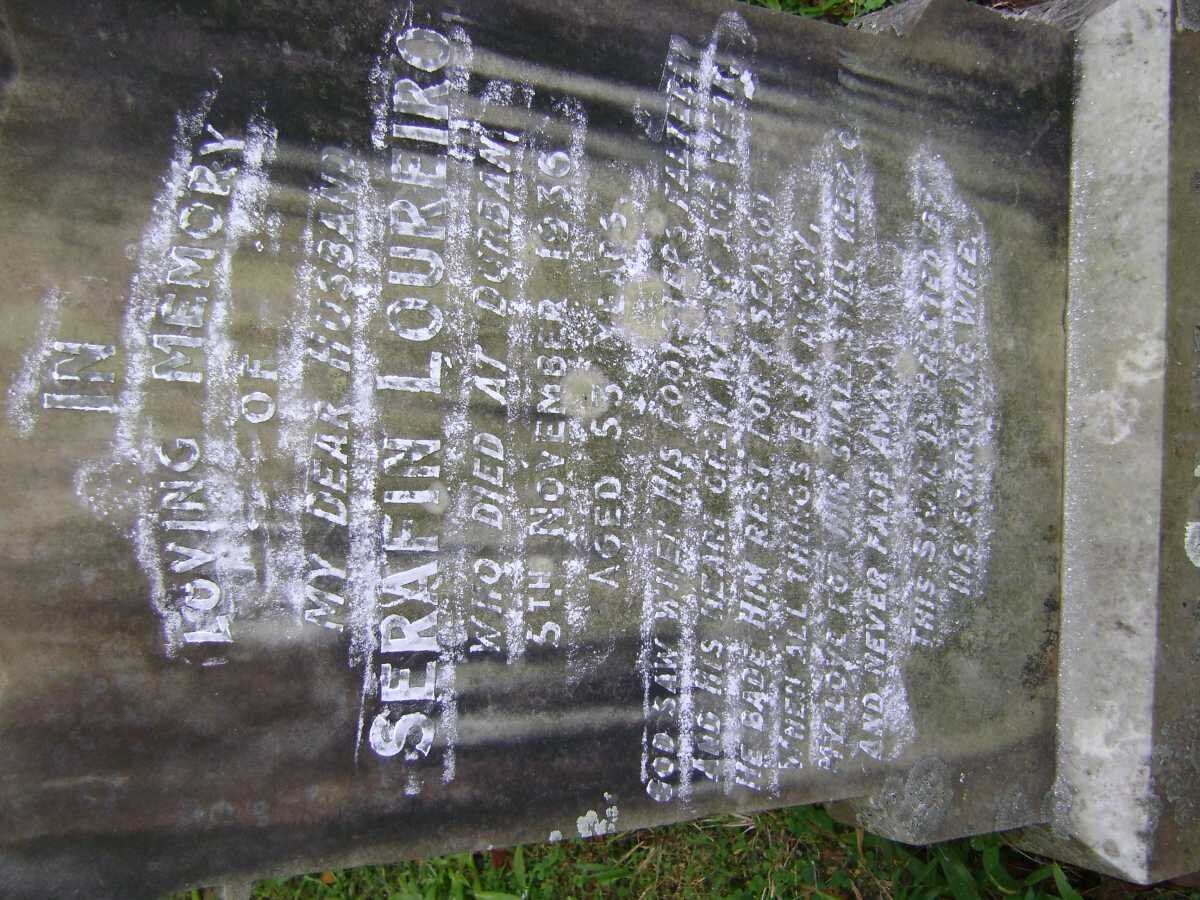 IN
LOVING MEMORY
OF
MY DEAR HUSBAND
SERAFIN LOUREIRO
WHO DIED AT
5TH NOVEMBER 1936
AGED 53 YEARS.
GOD SAW WHEN HIS FOOTSTEPS FALTERED
AND HIS HEART GREW WEAK
HE BADE HIM REST FOR A SEASON
WHEN ALL THINGS ELSE DECAY,
MY LOVE FOR HIM SHALL STILL KEEP
AND NEVER FADE AWAY
THIS STONE IS ERECTED BY
HIS SORROWING WIFE.